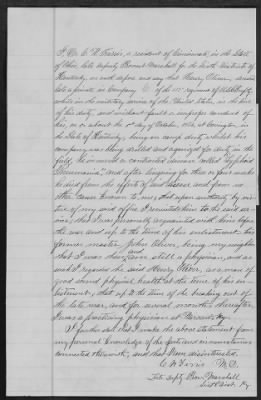 I, Dr. C. N. Fervis, a resident of Cincinnati, in the State
of Ohio, late deputy Provost Marshall for the Sixth District of
Kentucky, on oath depose and say that Henry Oliver,
late a private in Company of the 117" regiment of
while in the military service of the United States, in the line
of his duty, and without fault or improper conduct of
his, on or about the day of October, 1864, at Covington, in
the State of Kentucky, being on camp duty whilst his
company was being drilled and equipped for duty in the
field, he incurred a contracted disease called "Typhoid
Pneumonia," and after lingering for three or four weeks
he died from the effects of said disease and from no
other cause known to me; that upon authority by vir-
tue of my said office I
one; that I was personally acquainted with him before
the war and up to the time of his enlistment his
former master, John Oliver, being my neighbor
that I was then, and am still a physician, and as
such I regarded the said Henry Oliver, as a man of
good sound physical health at the time of his en-
listment; that up to the time of the breaking out of
the late war, and for several months thereafter
I was a practicing physician at Ky.
I further say that I make the above statement from
my personal knowledge of the facts and circumstances
connected therewith; and that I am disinterested.
M.D.
Late Depty Prov. Marshall
Sixth Dist. Ky